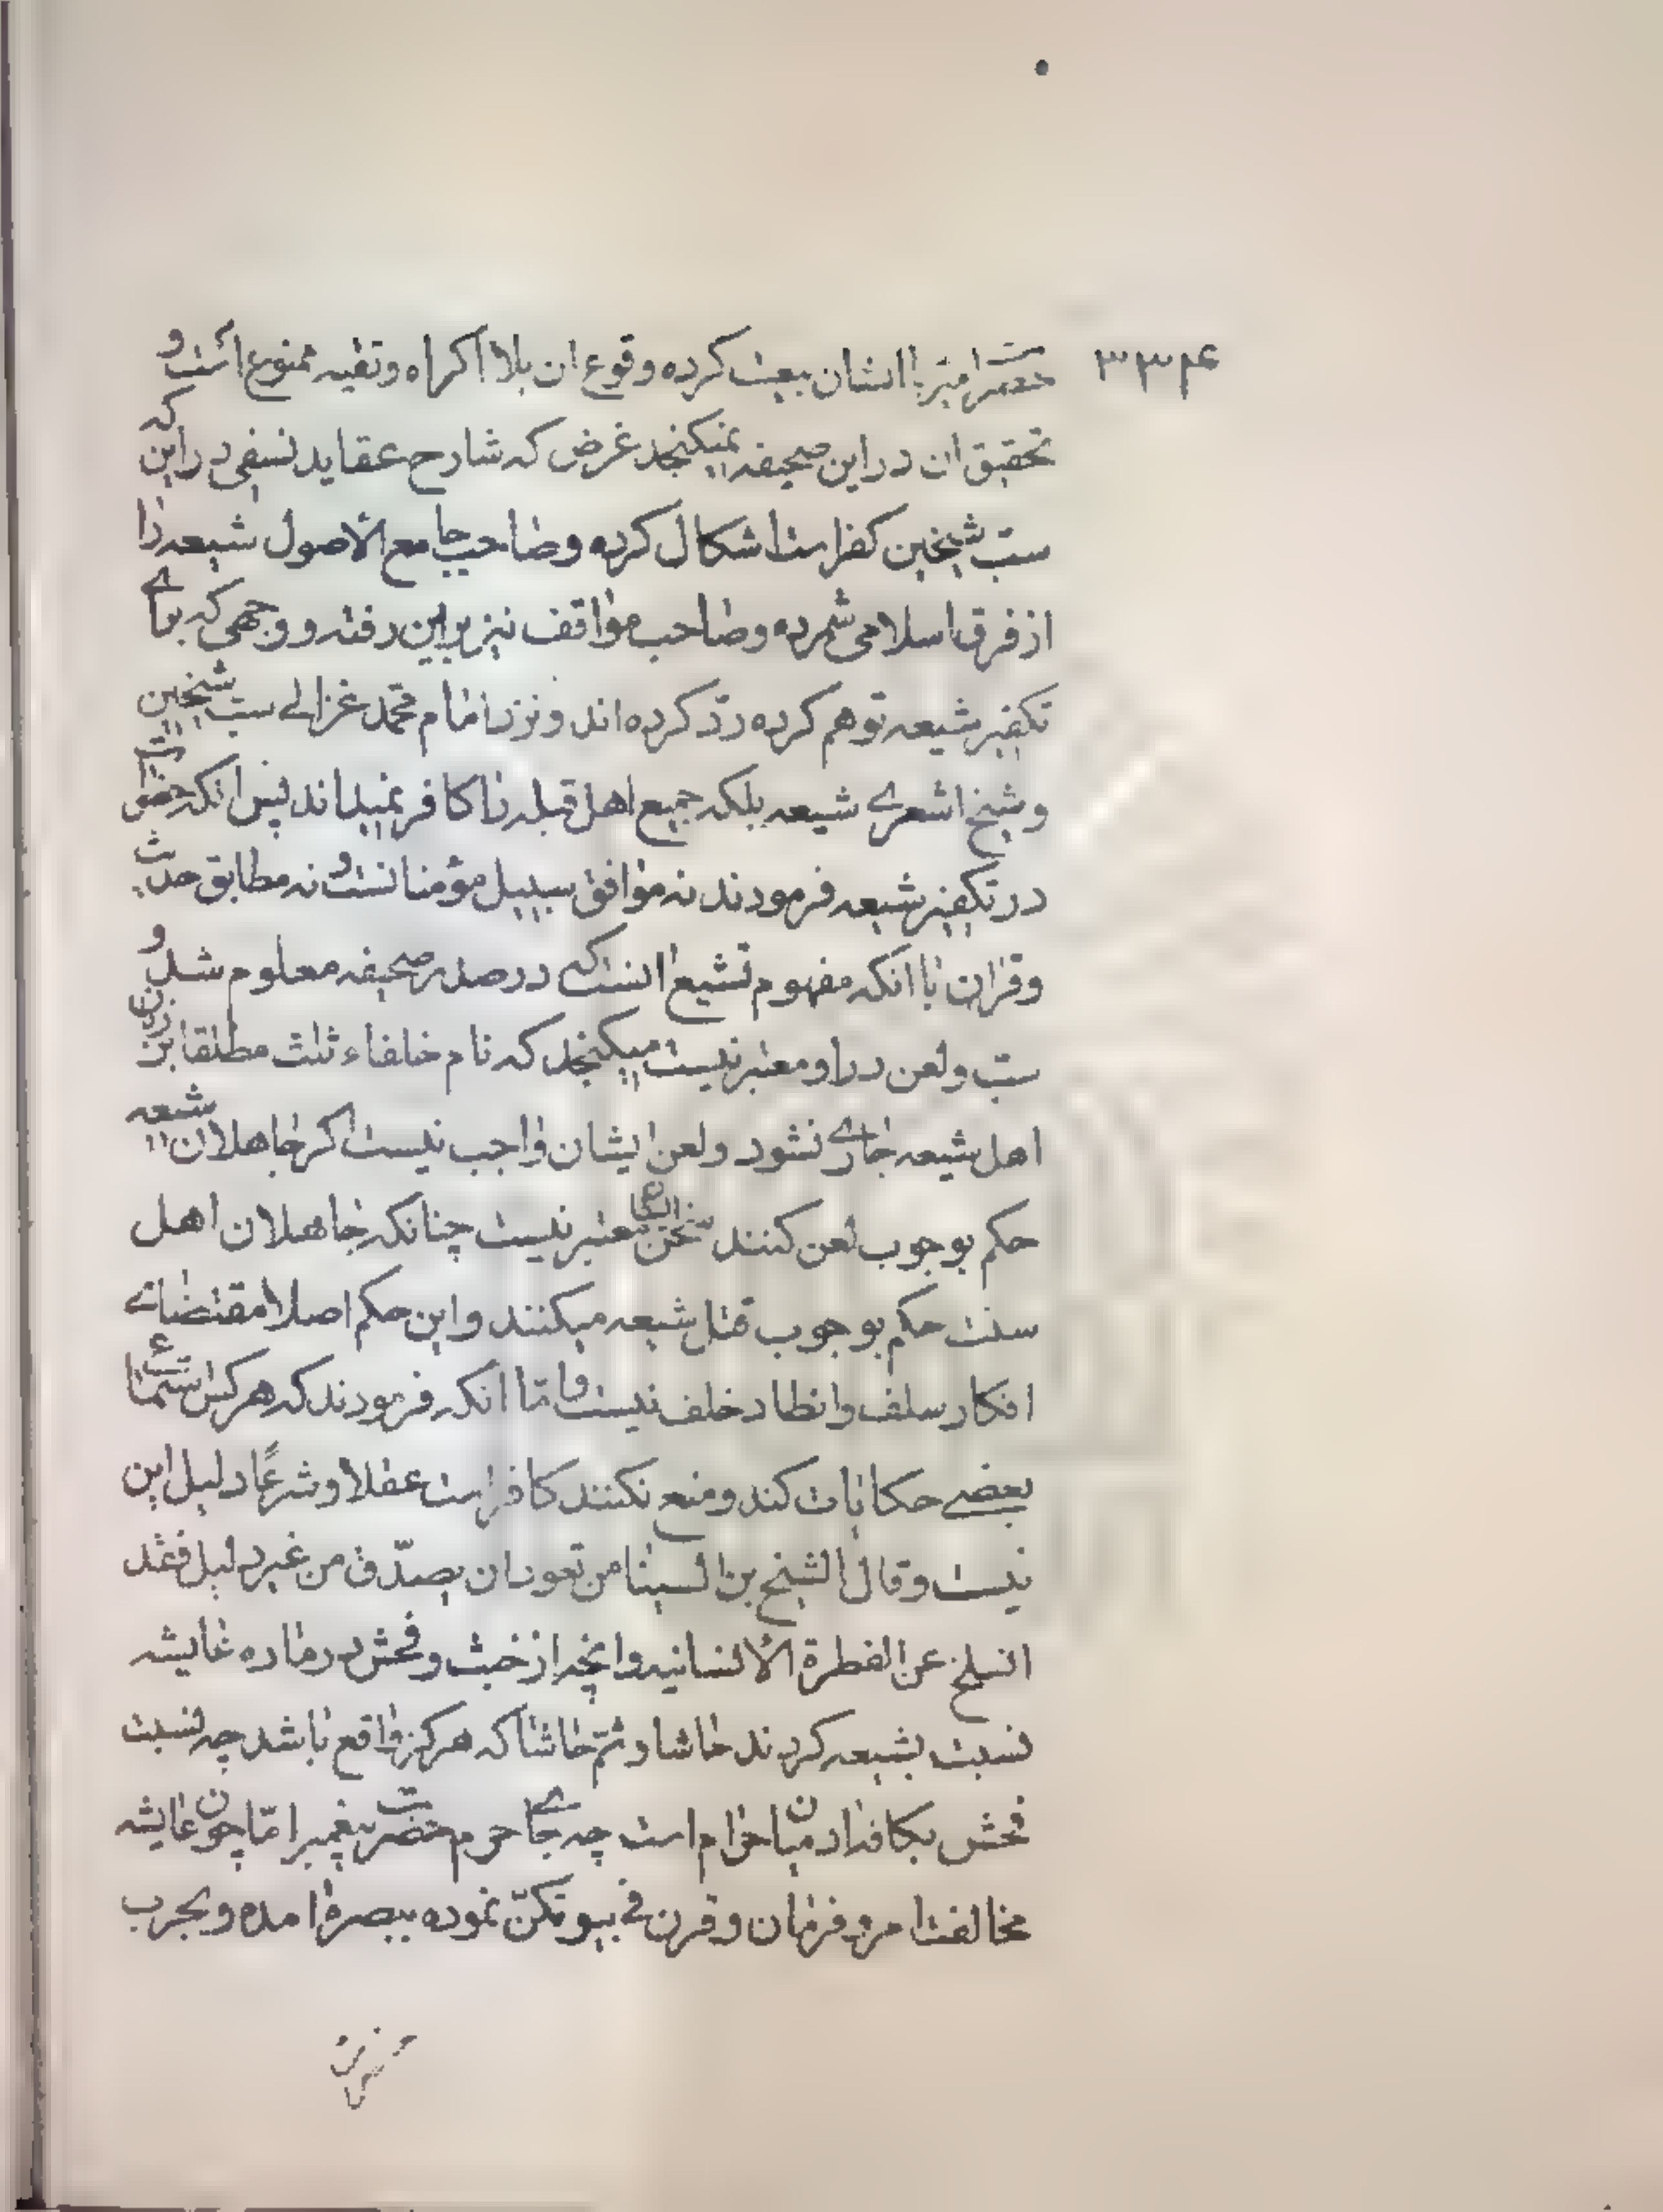 ۳۳۴
حضرت امیر با ایشان بیعت کرده وقوع ان بلا اکراه و تقیه ممنوع است و
تحقیق ان در این صحیفه نمیکنجد غرض که شارح عقاید نسفی در این که
سب شیخین کفر است اشکال کرده و صاحب جامع الاصول شیعه را
از فرق اسلامی شمرده و صاحب مواقف نیز بر این رفته و وجهی که برای
تکفیر شیعه توهم کرده رد کرده‌اند و نزد امام محمد غزالی سب شیخین
و شیخ اشعری شیعه بلکه جمیع اهل قبله را کافر نمیداند پس انکه حضرت
در تکفیر شیعه فرمودند نه موافق سبیل مؤمنانست و نه مطابق حدیث
و قران با انکه مفهوم تشیع انست که در صدر صحیفه معلوم شد و
سب و لعن در او معتبر نیست میکنجد که نام خلفاء ثلث مطلقا بر زبان
اهل شیعه جاری نشود و لعن ایشان واجب نیست اکر جاهلان شیعه
حکم بوجوب لعن کنند سخن ایشان معتبر نیست چنانکه جاهلان اهل
سنت حکم بوجوب قتل شیعه میکنند و این حکم اصلا مقتضای
افکار سلف و انظار خلف نیست و اما انکه فرمودند که هر کس استماع
بعضی حکایات کند و منع نکنند کافر است عقلا و شرعًا دلیل این
نیست و قال الشیخ بن السینا من تعود ان یصدّق من غیر دلیل فقد
انسلخ عن الفطرة الأنسانیه و انچه از خبث و فحش در ماده عایشه
نسبت بشیعه کردند حاشا و ثمّ حاشا که هرکز واقع باشد چه نسبت
فحش بکافه ادمیان حرام است چه جای حرم حضرت پیغمبر امّا چون عایشه
مخالفت امر و فرمان و قرن فی بیوتکنّ نموده ببصره امده و بحرب